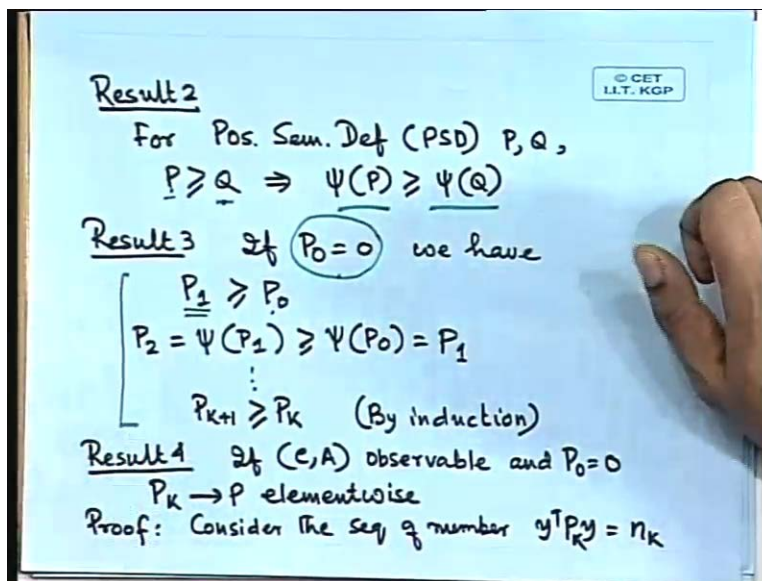 © CET
I.I.T. KGP
Result 2
For Pos. Sem. Def (PSD) P, Q,
P ≥ Q ⇒ Ψ(P) ≥ Ψ(Q)
Result 3 If P₀ = 0 we have
P₁ ≥ P₀
P₂ = Ψ(P₁) ≥ Ψ(P₀) = P₁
⋮
P_{K+1} ≥ P_K (By induction)
Result 4 If (C, A) observable and P₀ = 0
P_K → P elementwise
Proof: Consider the seq of number yᵀP_Ky = n_K